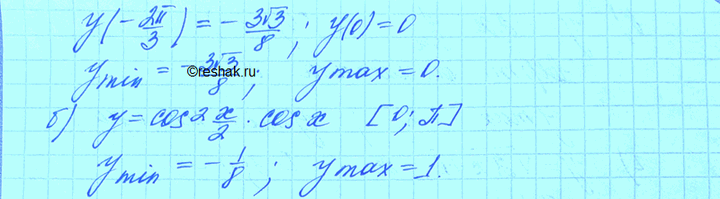 y(-2π/3) = -3√3/8; y(0)=0
y min = -3√3/8; y max = 0.
©reshak.ru
б) y = cos2 x/2 · cos x [0; π]
y min = -1/8; y max = 1.